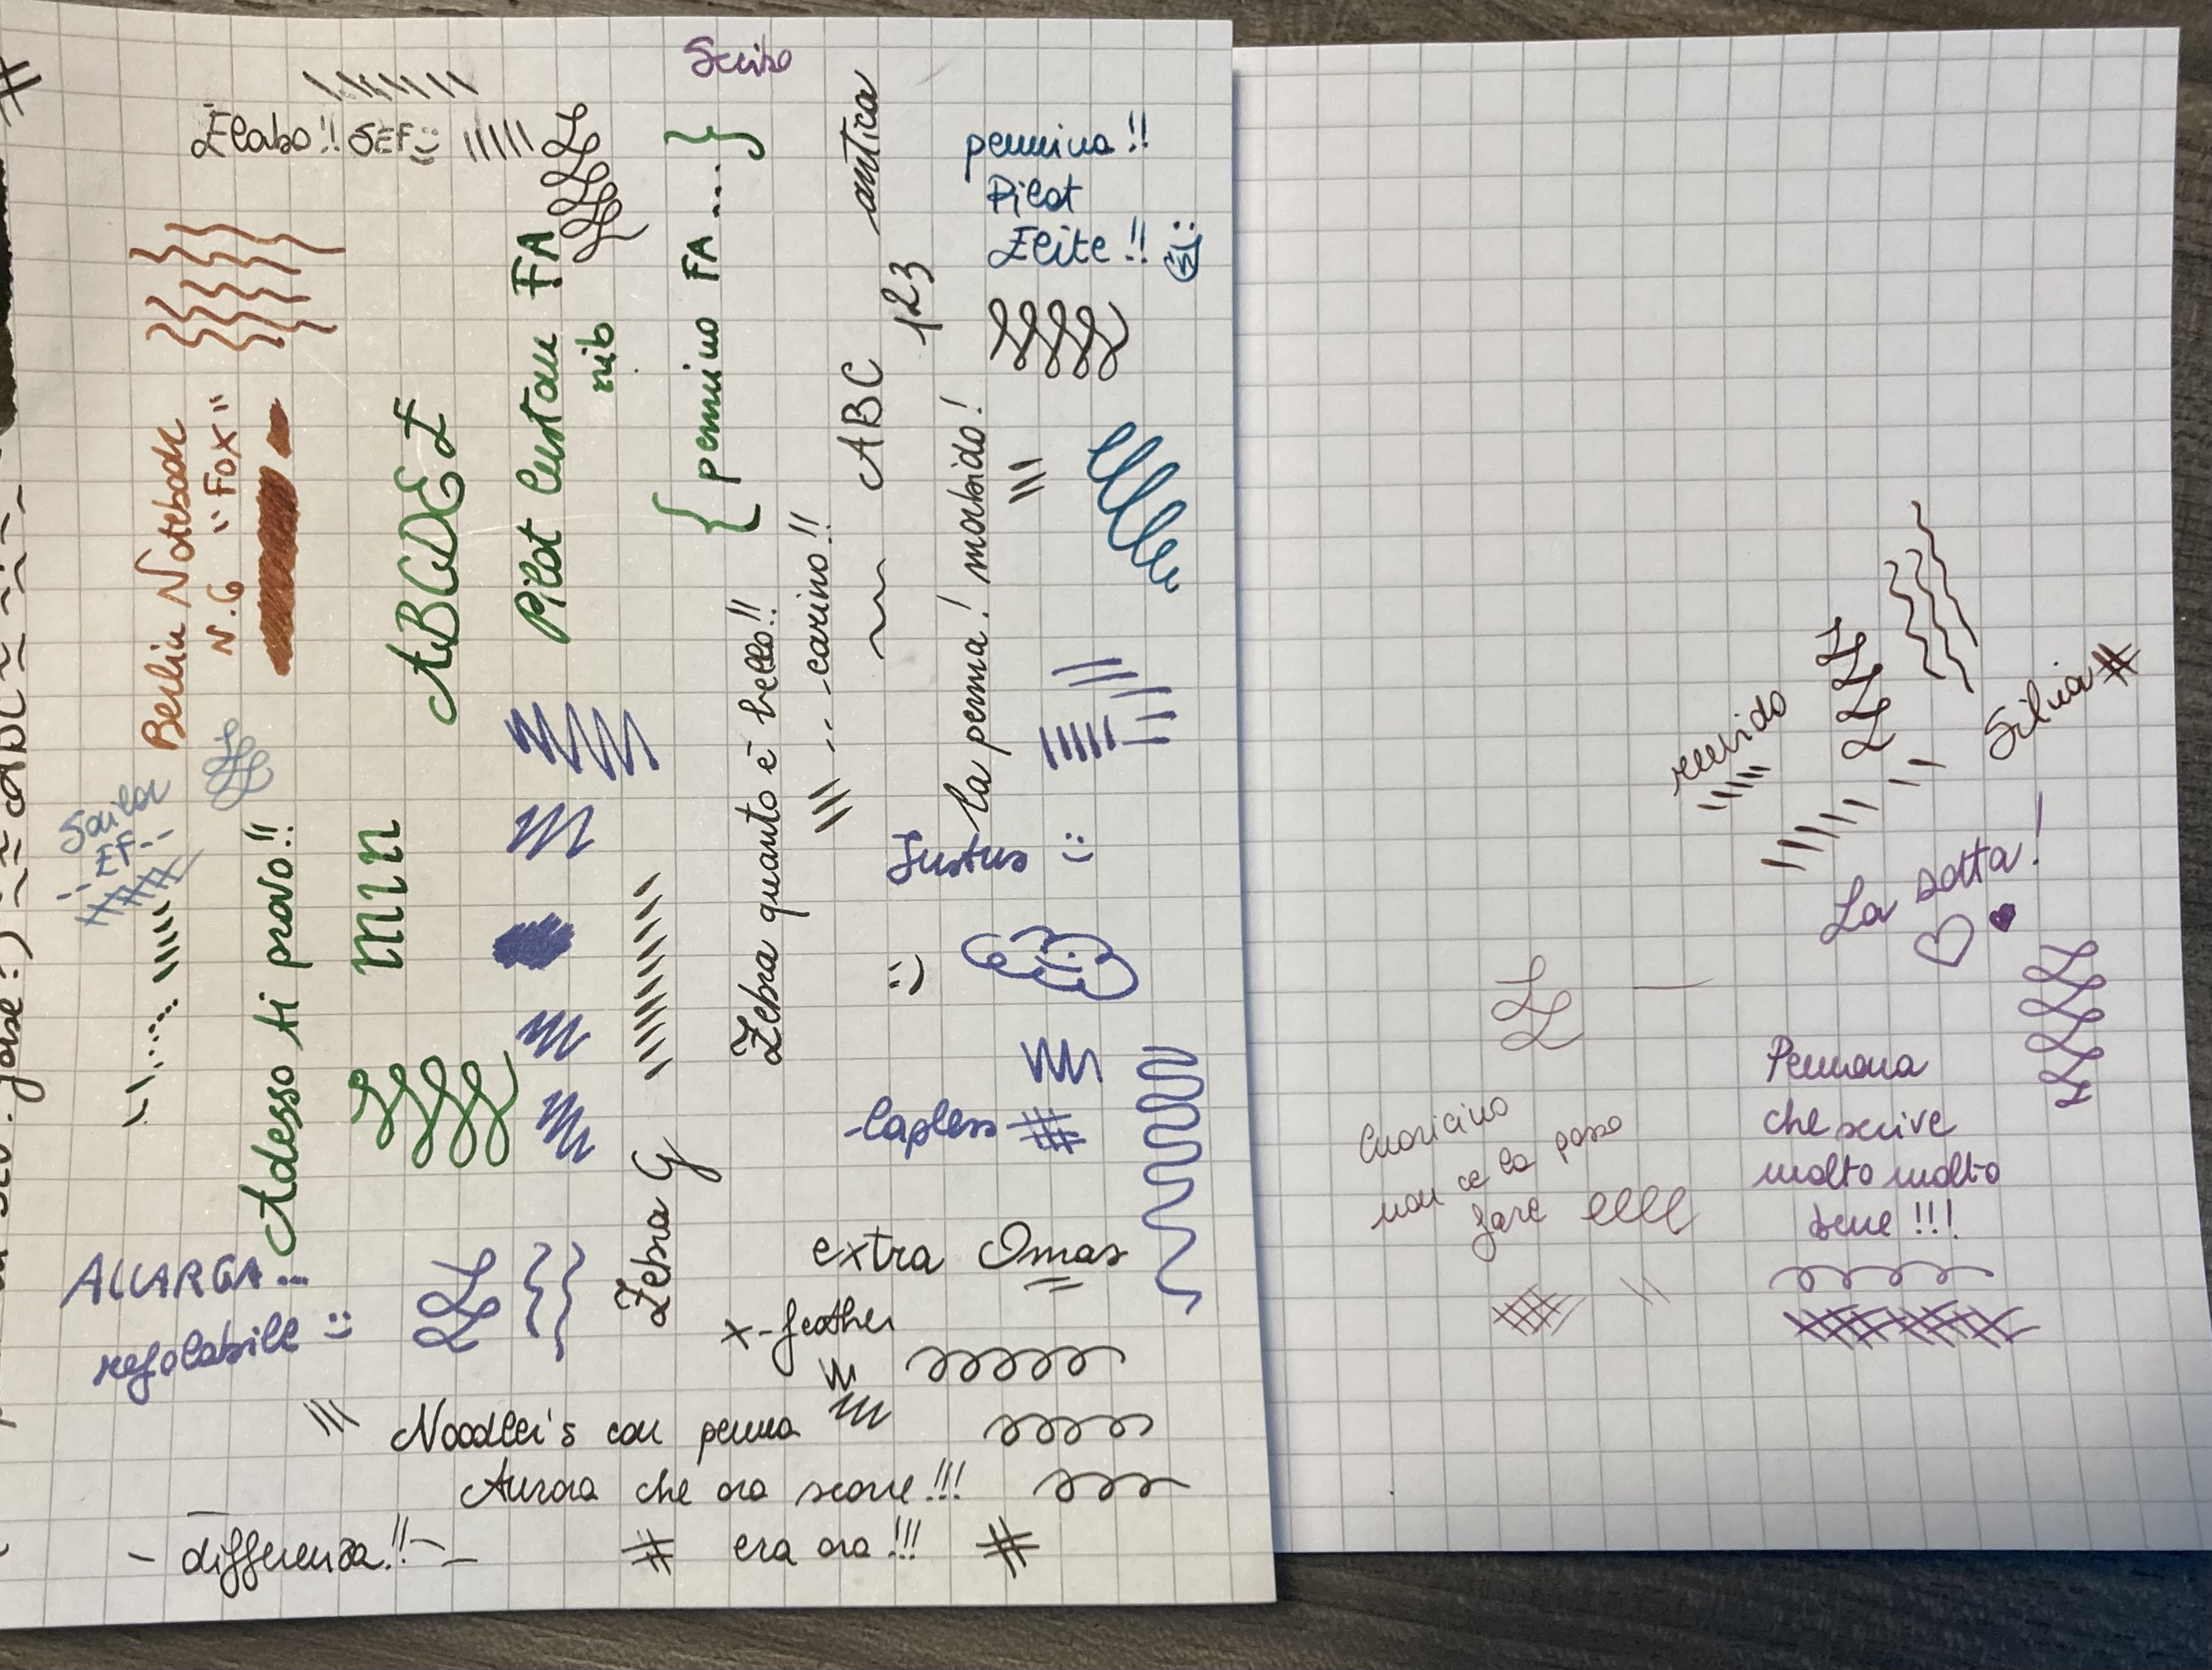 Scrivo
Elabo!! SEF
antica
pennina!!
Pilot
Elite!!
Berlin Notebook
N.6 "Fox"
ABCDEL
Pilot Custom FA
nib
{pennino FA....}
123
ABC
la penna! morbido!
Zebra quanto è bello!!
... carino!!
Sailor
--EF--
Adesso ti provo!!
mnn
Justus :)
-Capless-
Zebra G
extra Omas
x-feather
ALLARGA...
regolabile :)
Noodler's con penna
Aurora che ora scorre!!!
- differenza!! -
# era ora!!! #
ruvido
Silvia #
La sotta!
Pennona
che scrive
molto molto
bene!!!
Cuoricino
non ce la posso
fare